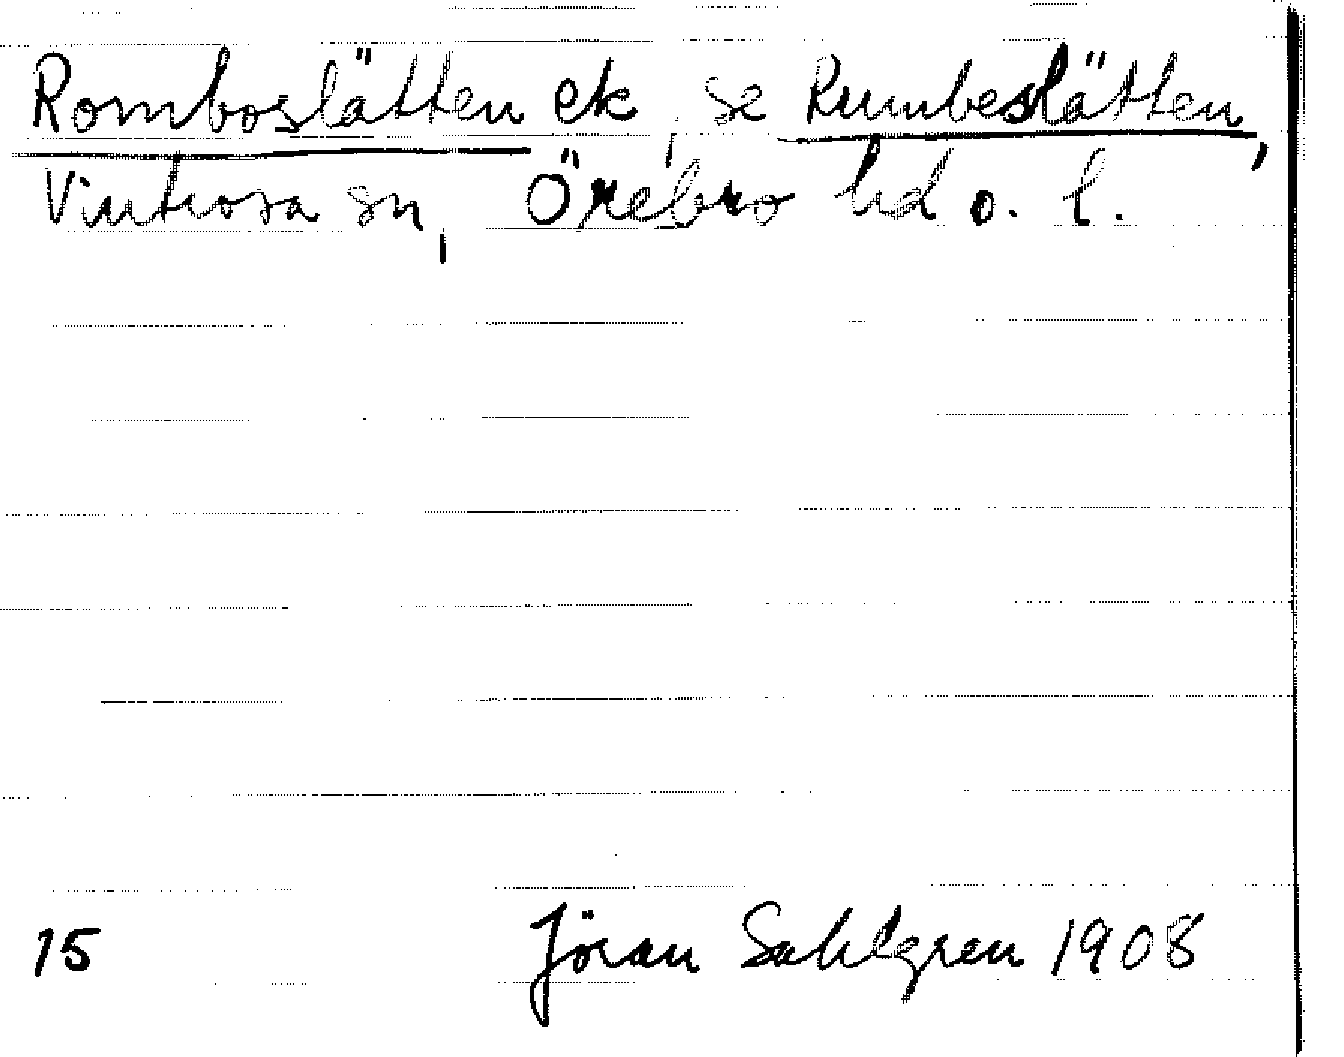 Romboslätten ek, se Rumbeslätten,
Vintrosa sn, Örebro hd o. l.
15 Jöran Sahlgren 1908